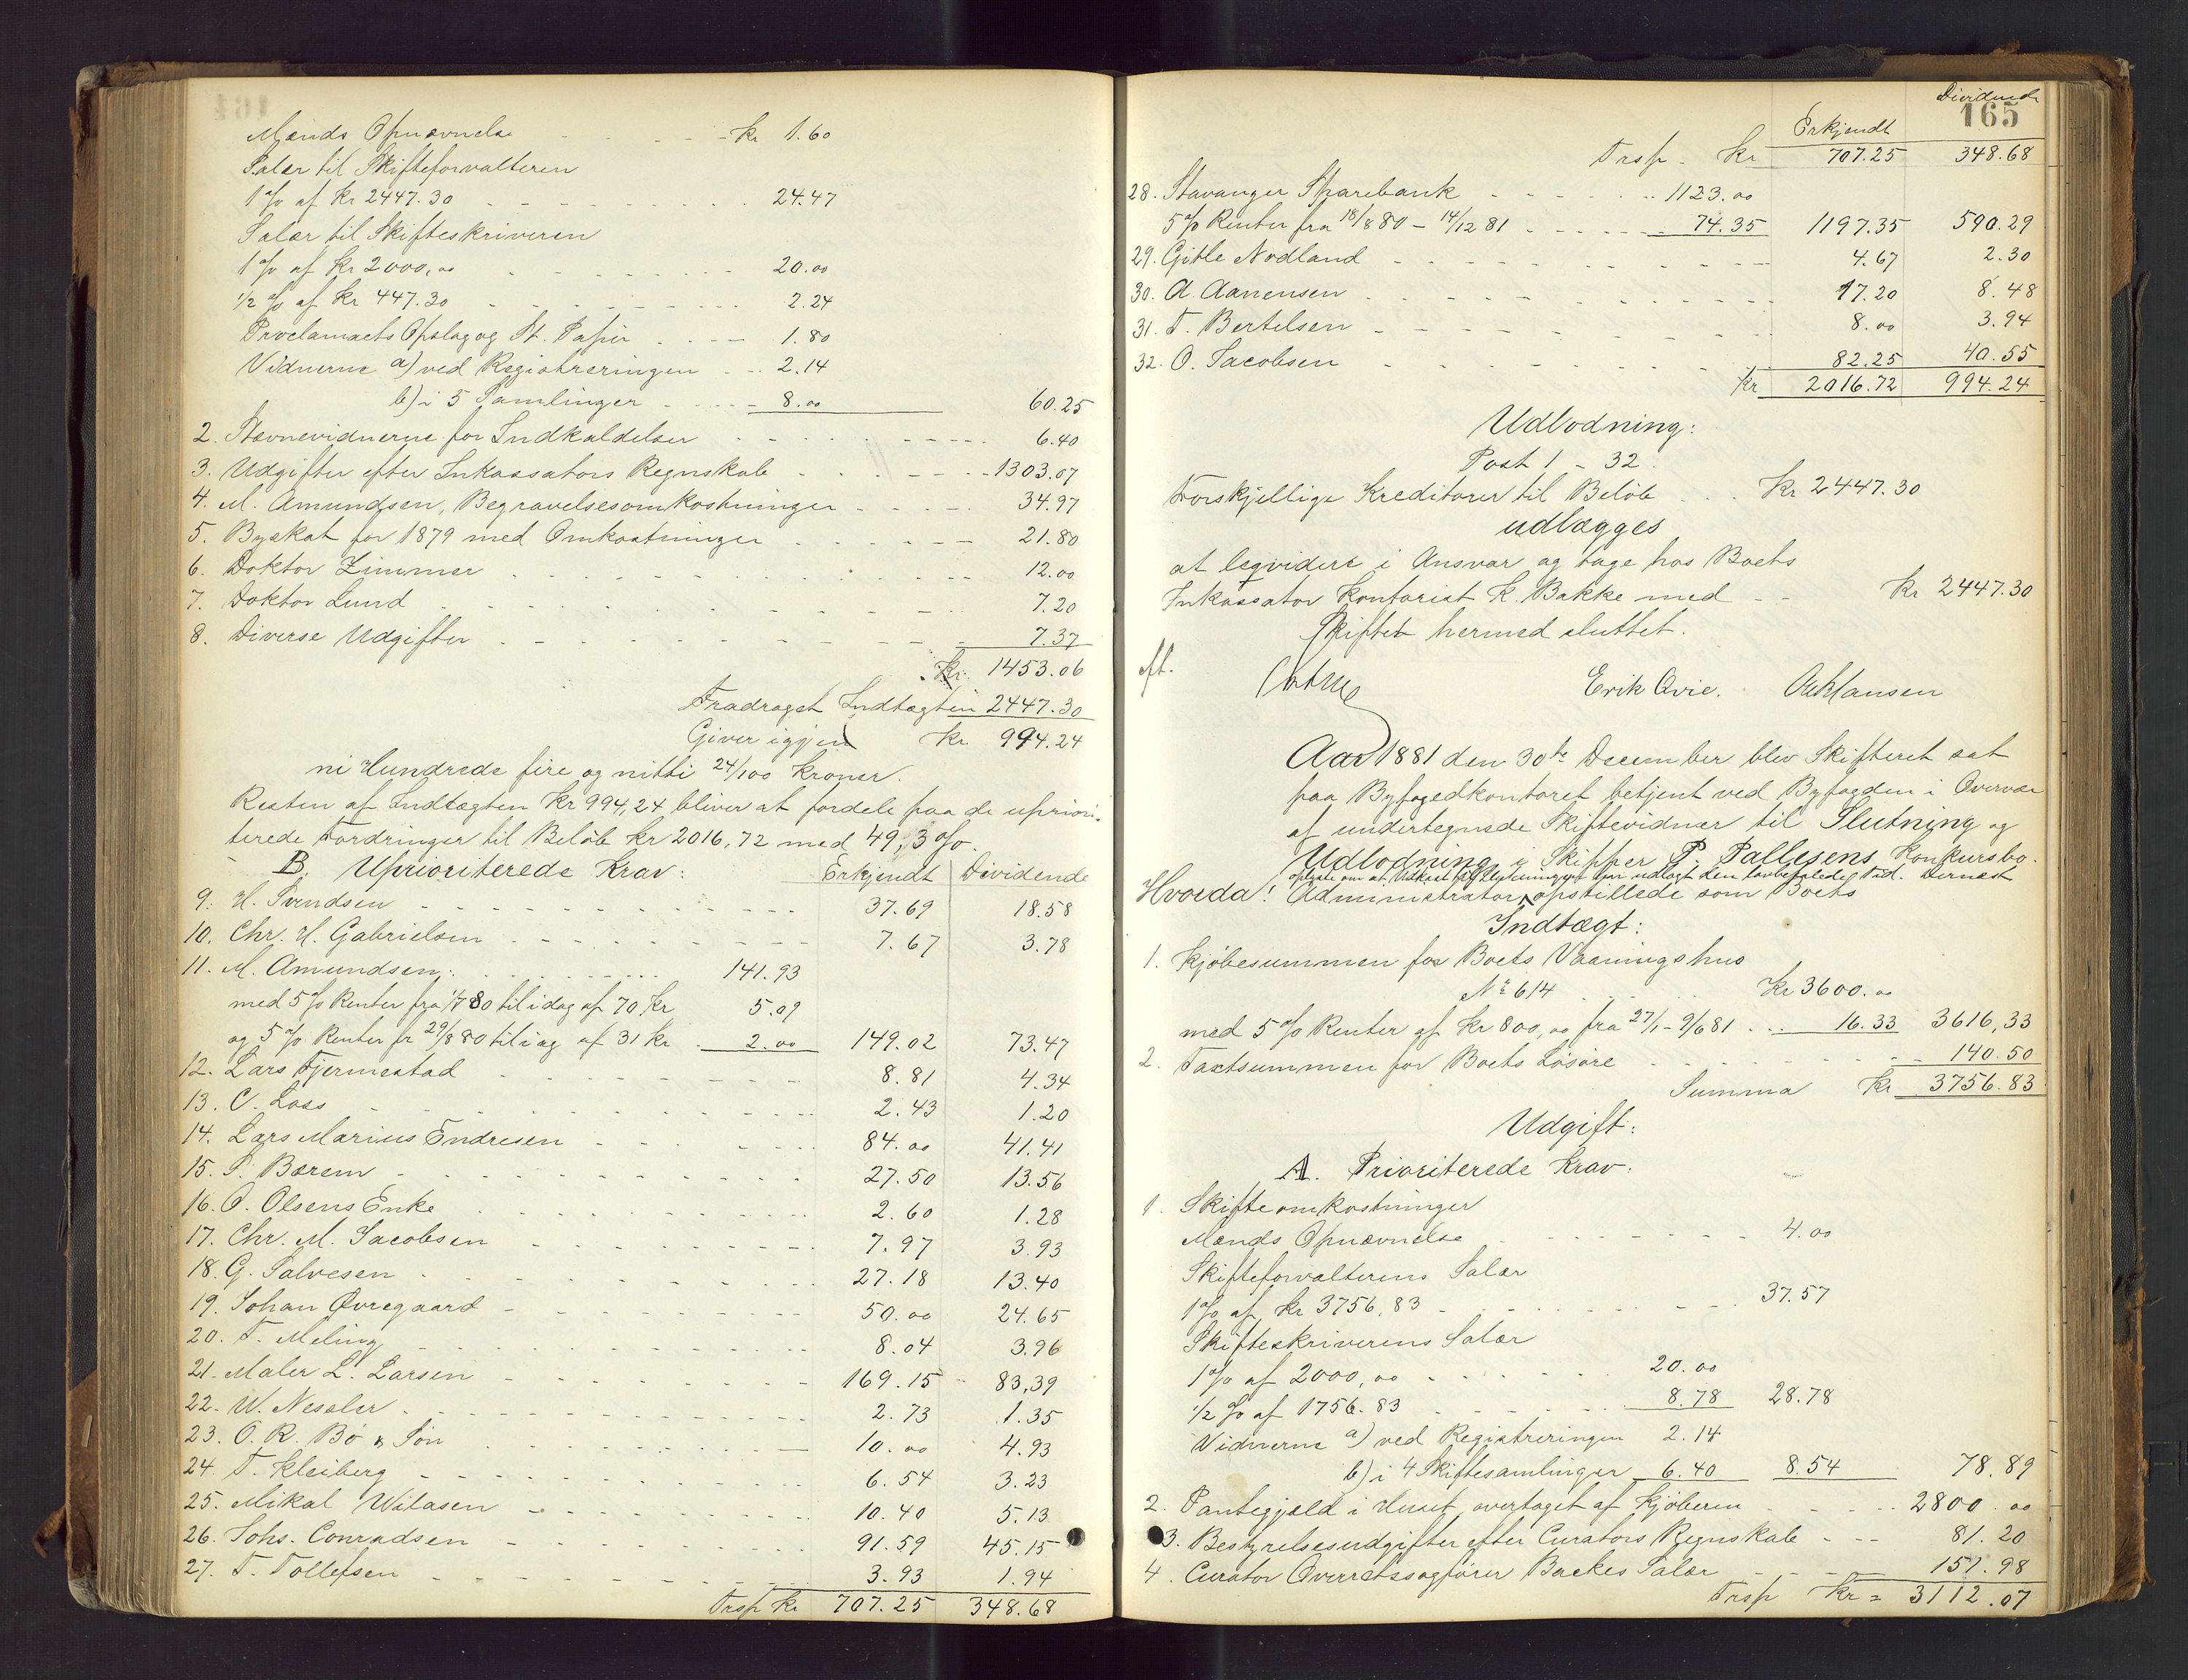 Mænds Opnævnelse - - - kr 1.60
Salær til Skifteforvalteren
1 % af kr 2447.30 - - - 24.47
Salær til Skifteskriveren
1 % af kr 2000,00 - - - 20.00
1/2 % af kr 447.30 - - - 2.24
Proclamaets Opslag og St. Papir - - - 1.80
Vidnerne a) ved Registreringen - - 2.14
b) i 5 Samlinger - - - 8.00 60.25
2. Stævnevidnerne for Indkaldelser - - - 6.40
3. Udgifter efter Inkassators Regnskab - - - 1303.07
4. M. Amundsen, Begravelsesomkostninger - - - 34.97
5. Byskat for 1879 med Omkostninger - - - 21.80
6. Doktor Zimmer - - - 12.00
7. Doktor Lund - - - 7.20
8. Diverse Udgifter - - - 7.37
Kr. 1453.06
Fradraget Indtægten 2447.30
Giver igjen kr 994.24
ni Hundrede fire og nitti 24/100 kroner.
Resten af Indtægten kr 994,24 bliver at fordele paa de upriori-
terede Fordringer til Beløb kr 2016,72 med 49,3 %.
B. Uprioriterede Krav: Erkjendt Dividende
9. H. Svendsen - - - 37.69 18.58
10. Chr. H. Gabrielsen - - - 7.67 3.78
11. M. Amundsen: - - - 141.93
med 5 % Renter fra 1/7 80 til idag af 70 kr 5.09
og 5 % Renter fr 29/8 80 til iag af 31 kr 2.00 149.02 73.47
12. Lars Fjermestad - - - 8.81 4.34
13. C. Loss - - - 2.43 1.20
14. Lars Marius Endresen - - - 84.00 41.41
15. P. Bærem - - - 27.50 13.56
16. O. Olsens Enke - - - 2.60 1.28
17. Chr. M. Jacobsen - - - 7.97 3.93
18. G. Salvesen - - - 27.18 13.40
19. Johan Øvregaard - - - 50.00 24.65
20. T. Meling - - - 8.04 3.96
21. Maler L. Larsen - - - 169.15 83,39
22. W. Nessler - - - 2.73 1.35
23. O. R. Bø & Søn - - - 10.00 4.93
24. T. Kleiberg - - - 6.54 3.23
25. Mikal Witasen - - - 10.40 5.13
26. Johs. Conradsen - - - 91.59 45.15
27. T. Tollefsen - - - 3.93 1.94
Trsp kr 707.25 348.68
Dividende
165
Erkjendt
Trsp. Kr 707.25 348.68
28. Stavanger Sparebank - - - 1123.00
5 % Renter fra 18/8 80 - 14/12 81 - - - 74.35 1197.35 590.29
29. Gitle Nodland - - - 4.67 2.30
30. A. Aanensen - - - 17.20 8.48
31. T. Bertelsen - - - 8.00 3.94
32. O. Jacobsen - - - 82.25 40.55
kr 2016.72 994.24
Udlodning:
Post 1 - 32.
Forskjellige Kreditorer til Beløb - - - Kr 2447.30
udlægges
at leqvidere i Ansvar og tage hos Boets
Inkassator Kontorist K. Bakke med - - Kr 2447.30
Skiftet hermed sluttet.
Erik Qvie. Hansen
Aar 1881 den 30te December blev Skifteret sat
paa Byfogedkontoret betjent ved Byfogden i Overvær
af undertegnede Skiftevidner til Slutning og
Udlodning i Skipper P. Pallesens Konkursbo.
oplyste om at Udkast til har udlagt den lovbefalede Tid. Dernæst
Hvorda! Administrator opstillede som Boets
Indtægt:
1. Kjøbesummen for Boets Vaaningshus
No 614 - - - Kr 3600.00
med 5 % Renter af kr 800,00 fra 27/1 - 9/6 81 - - - 16.33 3616,33
2. Taxtsummen for Boets Løsøre - - - 140.50
Summa Kr 3756.83
Udgift:
A. Prioriterede Krav:
1. Skifteomkostninger
Mænds Opnævnelse - - - 4.00
Skifteforvalterens Salær
1 % af kr 3756,83 - - - 37.57
Skifteskriverens Salær
1 % af 2000,00 - - - 20.00
1/2 % af 1756.83 - - - 8.78 28.78
Vidnerne a) ved Registreringen 2.14
b) i 4 Skiftesamlinger 6.40 8.54 78.89
2. Pantegjæld i Huset, overtaget af Kjøberen - - - 2800.00
3. Bestyrelsesudgifter efter Curators Regnskab - - - 81.20
4. Curator Overretssagfører Backes Salær - - - 151.98
Trsp Kr = 3112.07